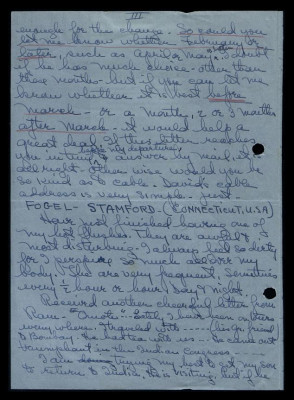 III
enough for the change. So could you
let me know whether February or
later, such as April or May, I doubt
if he has much choice - other than
these months - but if you can let me
know whether it is best before
March - or a month, 2 or 3 months
after March - it would help a
great deal. If this letter reaches
you before my departure
to answer by mail, it is
all right - otherwise would you be
so kind as to cable. David's cable
address is very simple - just -
FOGEL - STAMFORD. (CONNECTICUT, U.S.A)
Have just finished having one of
my hot flushes. They are awful &
most disturbing. I always feel so dirty
for I perspire so much all over my
body. They are very frequent, sometimes
every ½ hour or hour day & night.
Received another cheerful letter from
Ram - "Quote" - Lately I have been
every where. Traveled with ----- his friend
to Bombay. He has been with us --- he came out
triumphant in the Indian Congress -----
I am trying my best to get my son
to return to India, this is visiting, but if he